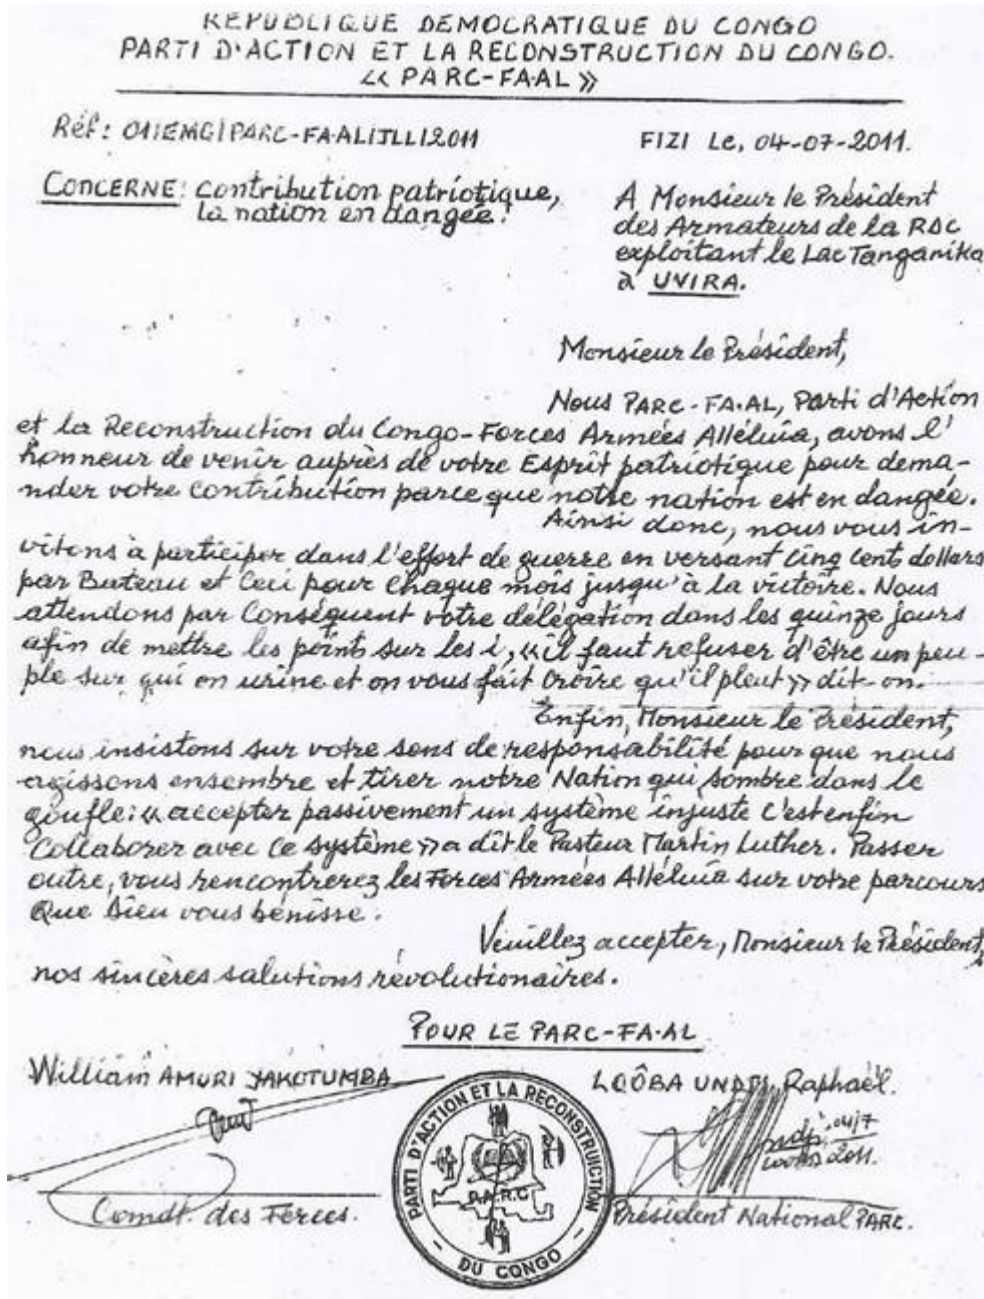 REPUBLIQUE DEMOCRATIQUE DU CONGO
PARTI D'ACTION ET LA RECONSTRUCTION DU CONGO.
<< PARC-FA.AL >>
Réf: 011EMG|PARC-FA-AL|JLL|2011
FIZI Le, 04-07-2011.
CONCERNE: Contribution patriotique,
la nation en dangée.
A Monsieur le Président
des Armateurs de la RDC
exploitant le Lac Tanganika
à UVIRA.
Monsieur le Président,
Nous PARC-FA.AL, Parti d'Action
et la Reconstruction du Congo-Forces Armées Alléluia, avons l'
honneur de venir auprès de votre Esprit patriotique pour dema-
nder votre Contribution parce que notre nation est en dangée.
Ainsi donc, nous vous in-
vitons à participer dans l'effort de guerre en versant Cinq Cent dollars
par Bateau et Ceci pour Chaque mois jusqu'à la victoire. Nous
attendons par Conséquent votre délégation dans les quinze jours
afin de mettre les points sur les i, <<il faut refuser d'être un peu-
ple sur qui on urine et on vous fait Croire qu'il pleut >> dit-on.
Enfin, Monsieur le Président,
nous insistons sur votre sens de responsabilité pour que nous
agissons ensembre et tirer notre Nation qui sombre dans le
goufle: << accepter passivement un système injuste C'est enfin
Collaborer avec Ce système >> a dit le Pasteur Martin Luther. Passer
outre, vous rencontrerez les Forces Armées Alléluia sur votre parcours
Que Dieu vous bénisse.
Veuillez accepter, Monsieur le Président,
nos sincères salutions révolutionaires.
POUR LE PARC-FA.AL
William AMURI YAKOTUMBA
LOÔBA UNDJI Raphaël.
04/7
2011.
Comdt. des Forces.
Président National PARC.
PARTI D'ACTION ET LA RECONSTRUICTION
P.A.R.C
- DU CONGO -